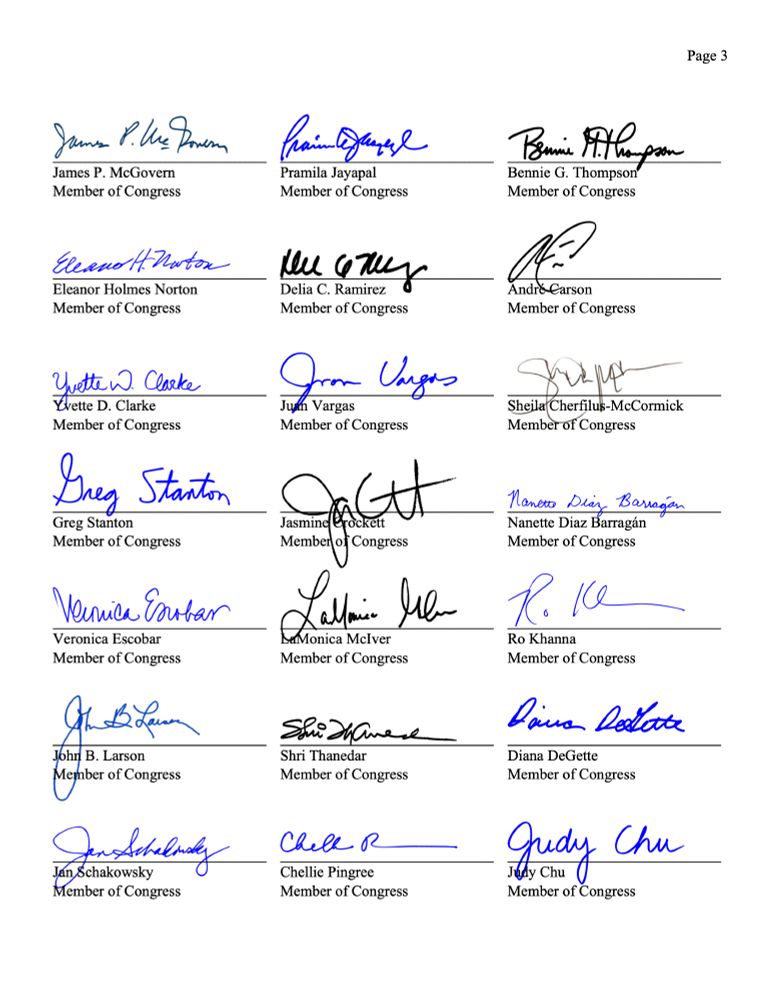 Page 3
James P. McGovern Pramila Jayapal Bennie G. Thompson
James P. McGovern Pramila Jayapal Bennie G. Thompson
Member of Congress Member of Congress Member of Congress
Eleanor H. Norton
Eleanor Holmes Norton Delia C. Ramirez André Carson
Member of Congress Member of Congress Member of Congress
Yvette D. Clarke Juan Vargas
Yvette D. Clarke Juan Vargas Sheila Cherfilus-McCormick
Member of Congress Member of Congress Member of Congress
Greg Stanton Nanette Diaz Barragán
Greg Stanton Jasmine Crockett Nanette Diaz Barragán
Member of Congress Member of Congress Member of Congress
Veronica Escobar LaMonica
Veronica Escobar LaMonica McIver Ro Khanna
Member of Congress Member of Congress Member of Congress
John B. Larson Shri Thanedar Diana DeGette
John B. Larson Shri Thanedar Diana DeGette
Member of Congress Member of Congress Member of Congress
Jan Schakowsky Judy Chu
Jan Schakowsky Chellie Pingree Judy Chu
Member of Congress Member of Congress Member of Congress